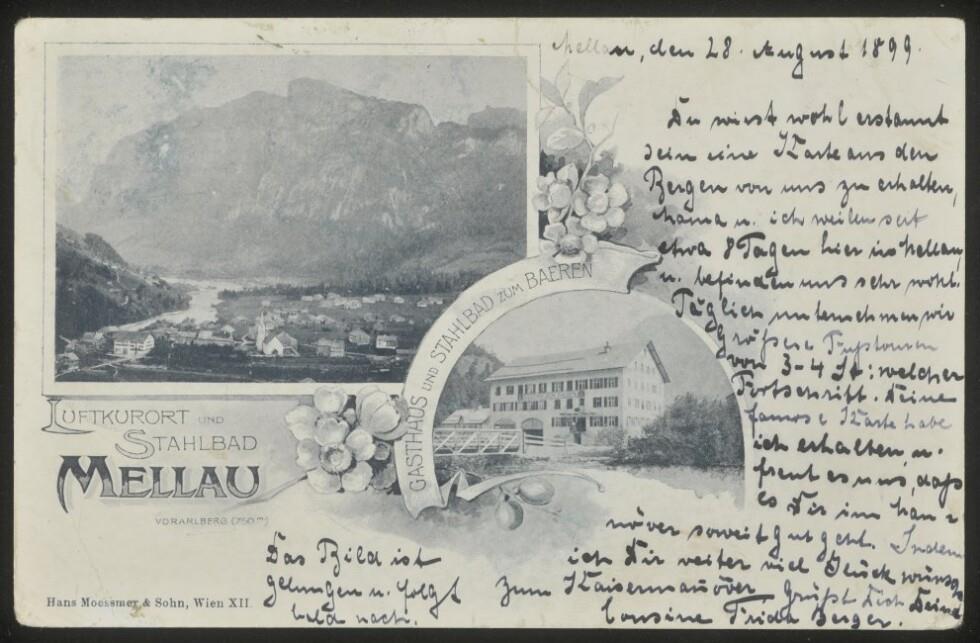 Mellau, den 28. August 1899.
Du wirst wohl erstaunt
sein eine Karte aus den
Bergen von uns zu erhalten,
Mama u. ich weilen seit
etwa 8 Tagen hier in Mellau,
u. befinden uns sehr wohl.
Täglich unternehmen wir
größere Fusstouren
von 3-4 St: welcher
Fortschritt. Deine
famose Karte habe
ich erhalten, u.
freut es uns, daß
es Dir im Man=
növer soweit gut geht. Indem
ich Dir weiter viel Glück wünsche
zum Kaisermanöver Grüßt Dich Deine
Cousine Frida Berger.
Das Bild ist
gelungen u. folgt
bald nach.
GASTHAUS UND STAHLBAD ZUM BAEREN
LUFTKURORT UND
STAHLBAD
MELLAU
VORARLBERG (750 m)
Hans Moessmer & Sohn, Wien XII.